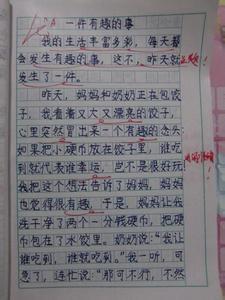 一件有趣的事
我的生活丰富多彩，每天都
会发生有趣的事，这不，昨天就
发生了一件。
昨天，妈妈和奶奶正在包饺
子，我看着又大又漂亮的饺子，
心里突然冒出来一个有趣的念头：
如果把小硬币放在饺子里，谁吃
到就代表谁幸运，岂不是很好玩
我把这个想法告诉了妈妈，妈妈
也觉得很有趣。于是，妈妈让我
洗干净了两个一分钱硬币，把硬
币包在了水饺里。奶奶说：“我让
谁吃到，谁就吃到。”我一听，可
急了，连忙说：“那可不行，不然